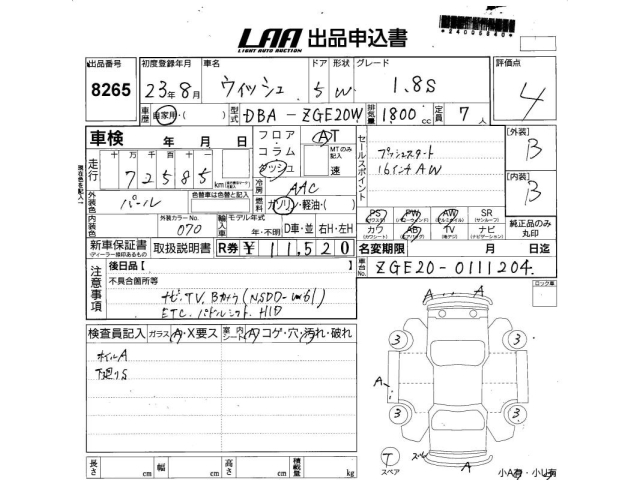 LAA 出品申込書
LIGHT AUTO AUCTION
*24005840*
出品番号 8265
初度登録年月 23年8月
車名 ウィッシュ
ドア 5 形状 W
グレード 1.8S
評価点 4
車歴 自家用・( )
型式 DBA-ZGE20W
排気量 1800cc
定員 7人
車検 年 月 日
フロア・コラム・ダッシュ
AT
MTのみ記入 速
セールスポイント
プッシュスタート
16インチAW
[外装] B
[内装] B
走行 十万千百十一
72585 km
現在色を記入
外装色 パール
色替車は色替と記入
外装カラーNo. 070
内装色
冷房 AAC
燃料 ガソリン・軽油・( )
輸入車 モデル年式 年・不明
D車・並 右H・左H
PS PW AW SR
(パワステ) (パワーウィンド) (アルミホイル) (サンルーフ)
カワ AB TV ナビ
純正品のみ丸印
新車保証書
(ディーラー捺印あるもの)
取扱説明書
R券 ¥11,520
名変期限 月 日迄
車台No. ZGE20-0111204
ロック車
注意事項
後日品[ ]
不具合箇所等
ナビ、TV、Bカメラ(NSDD-W61)
ETC、パドルシフト、HID
検査員記入
ガラス A・X要ス
室内 シート A コゲ・穴・汚れ・破れ
ホイルA
下廻りS
A A
3 3
A
3 3
T
スペア
A
小A有・小U有
長さ cm 幅 cm 高さ cm 積載量 kg